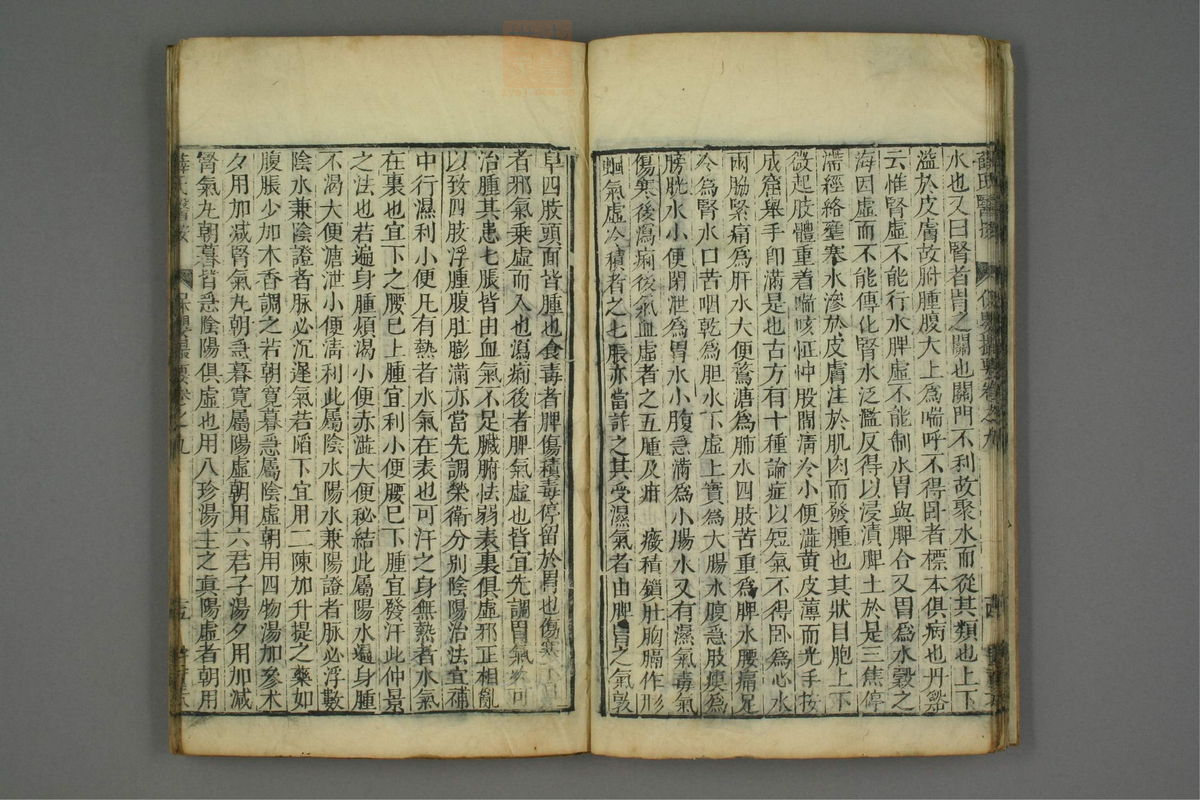 薛氏醫按 保嬰撮要卷之九
水也又曰腎者胃之關也關門不利故聚水而從其類也上下
溢於皮膚故胕腫腹大上爲喘呼不得卧者標本俱病也丹谿
云惟腎虛不能行水脾虛不能制水胃與脾合又胃爲水穀之
海因虛而不能傳化腎水泛濫反得以浸漬脾土於是三焦停
滯經絡壅塞水滲於皮膚注於肌肉而發腫也其狀目胞上下
微起肢體重着喘咳怔忡股間清冷小便澁黄皮薄而光手按
成窟舉手卽滿是也古方有十種論症以短氣不得卧爲心水
兩脇緊痛爲肝水大便鶩溏爲肺水四肢苦重爲脾水腰痛足
冷爲腎水口苦咽乾爲胆水下虛上實爲大腸水腹急肢瘦爲
膀胱水小便閉泄爲胃水小腹急滿爲小腸水又有濕氣毒氣
傷寒後瀉痢後氣血虛者之五腫及疳 癥積鎖肚胸膈作形
氣虛冷積者之七脹亦當詳之其受濕氣者由脾胃之氣敦
阜四肢頭面皆腫也食毒者脾傷積毒停留於胃也傷寒
者邪氣乗虛而入也瀉痢後者脾氣虛也皆宜先調胃氣 可
治腫其患七脹皆由血氣不足臟腑怯弱表裏俱虛邪正相亂
以致四肢浮腫腹肚膨滿亦當先調榮衛分別陰陽治法宜補
中行濕利小便凡有熱者水氣在表也可汗之身無熱者水氣
在裏也宜下之腰已上腫宜利小便腰已下腫宜發汗此仲景
之法也若遍身腫煩渴小便赤澁大便秘結此屬陽水遍身腫
不渴大便溏泄小便清利此屬陰水陽水兼陽證者脉必浮數
陰水兼陰證者脉必沉遲氣若陷下宜用二陳加升提之藥如
腹脹少加木香調之若朝寛暮急屬陰虛朝用四物湯加參术
夕用加减腎氣丸朝急暮寛屬陽虛朝用六君子湯夕用加减
腎氣丸朝暮皆急陰陽俱虛也用八珍湯主之真陽虛者朝用
保嬰撮要卷之九